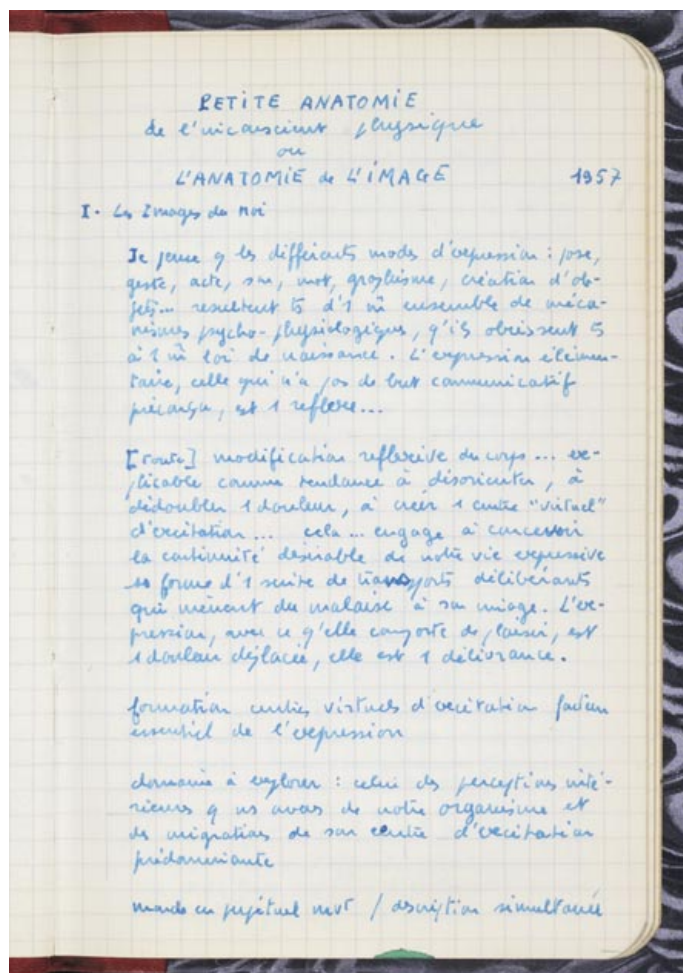 PETITE ANATOMIE
de l'inconscient physique
ou
L'ANATOMIE de L'IMAGE 1957
I. Les Images du Moi
Je pense q les différents modes d'expression : pose,
geste, acte, son, mot, graphisme, création d'ob-
jets... resultent ts d'1 m̂ ensemble de méca-
nismes psycho-physiologiques, q'ils obéissent ts
à 1 m̂ loi de naissance. L'expression élémen-
taire, celle qui n'a pas de but communicatif
préconçu, est 1 reflexe...
[toute] modification reflexive du corps ... ex-
plicable comme tendance à désorienter, à
dédoubler 1 douleur, à créer 1 centre "virtuel"
d'excitation ... cela ... engage à concevoir
la continuité desirable de notre vie expressive
ss forme d'1 suite de transports délibérants
qui mènent du malaise à son image. L'ex-
pression, avec ce q'elle comporte de plaisir, est
1 douleur déplacée, elle est 1 délivrance.
formation centres virtuels d'excitation facteur
essentiel de l'expression
domaine à explorer : celui des perceptions inté-
rieures q ns avons de notre organisme et
des migrations de son centre d'excitation
prédominante
monde en perpétuel mvt / description simultanée